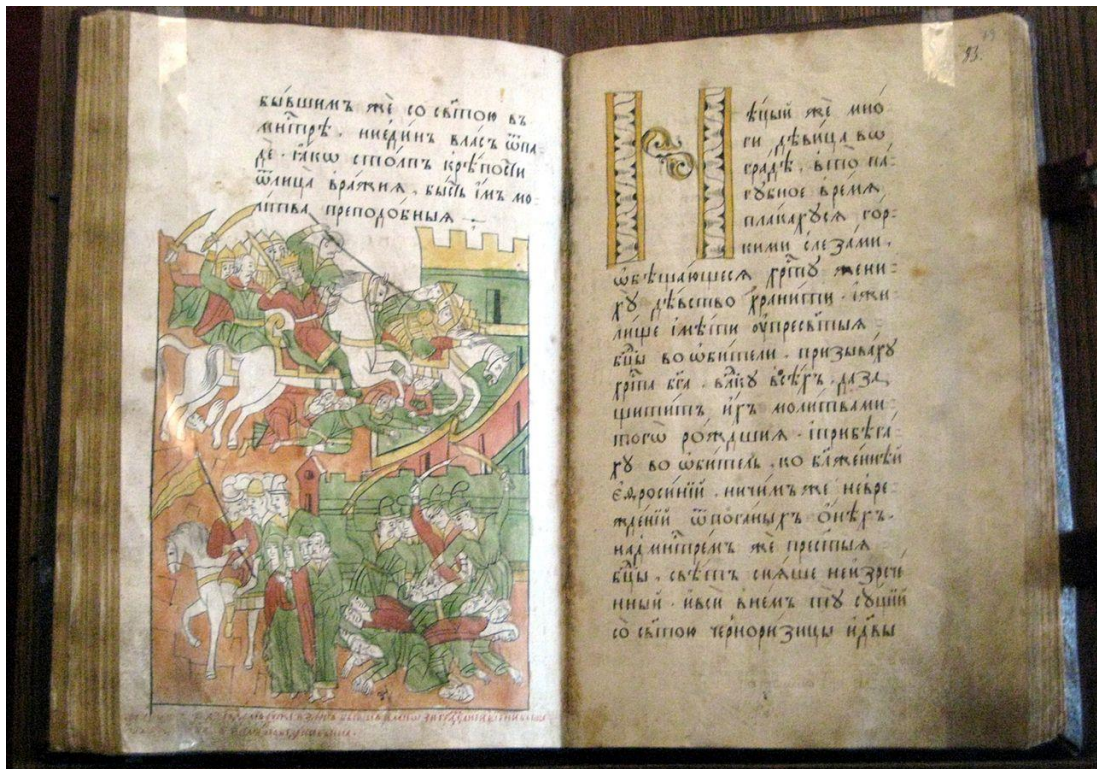 бы́вшимъ жѐ со свт҃ою въ
мнтⷭ҇рѣ̀. ниеди́нъ вла́съ ѿпа-
дѐ. ꙗ́кѡ сто́лпъ крѣ́пости
ѿлица̀ вра́жиѧ, бы́сть і́мъ мо-
ли́тва преподо́бныѧ
93.
Нѣ́цыѝ жѐ мно́
ги дѣви́ца во
гра́дѣ, вто̀ па́-
губное вре́мѧ
пла́кахꙋсѧ го́р-
кими слеза́ми,
ѡбѣща́ющесѧ хрⷭ҇тꙋ̀ жени-
хꙋ̀ дѣ́вство храни́ти. іжи-
ли́ще імѣ́ти ᲂу҆пресвт҃ы́ѧ
бцⷣы во ѡби́тели. призыва́хꙋ
хрⷭ҇та̀ бг҃а, влⷣкꙋ всѣ́хъ, даза-
щити́тъ и́хъ моли́твами
того̀ ро́ждшиѧ. іприбѣга́-
хꙋ во ѡби́тель, ко бл҃же́ннѣй
єѵфроси́нїй, ничи́мъже невре-
жде́нїй ѿпога́ныхъ ѻ́нѣхъ.
надмнтⷭ҇ре́мъ жѐ прест҃ы́ѧ
бцⷣы, свѣ́тъ сиѧ́ше неизрече́
нный. івси̑ вне́мъ тꙋ̀ сꙋ́щїи
со свт҃ою черно́ризицы идв҃ы